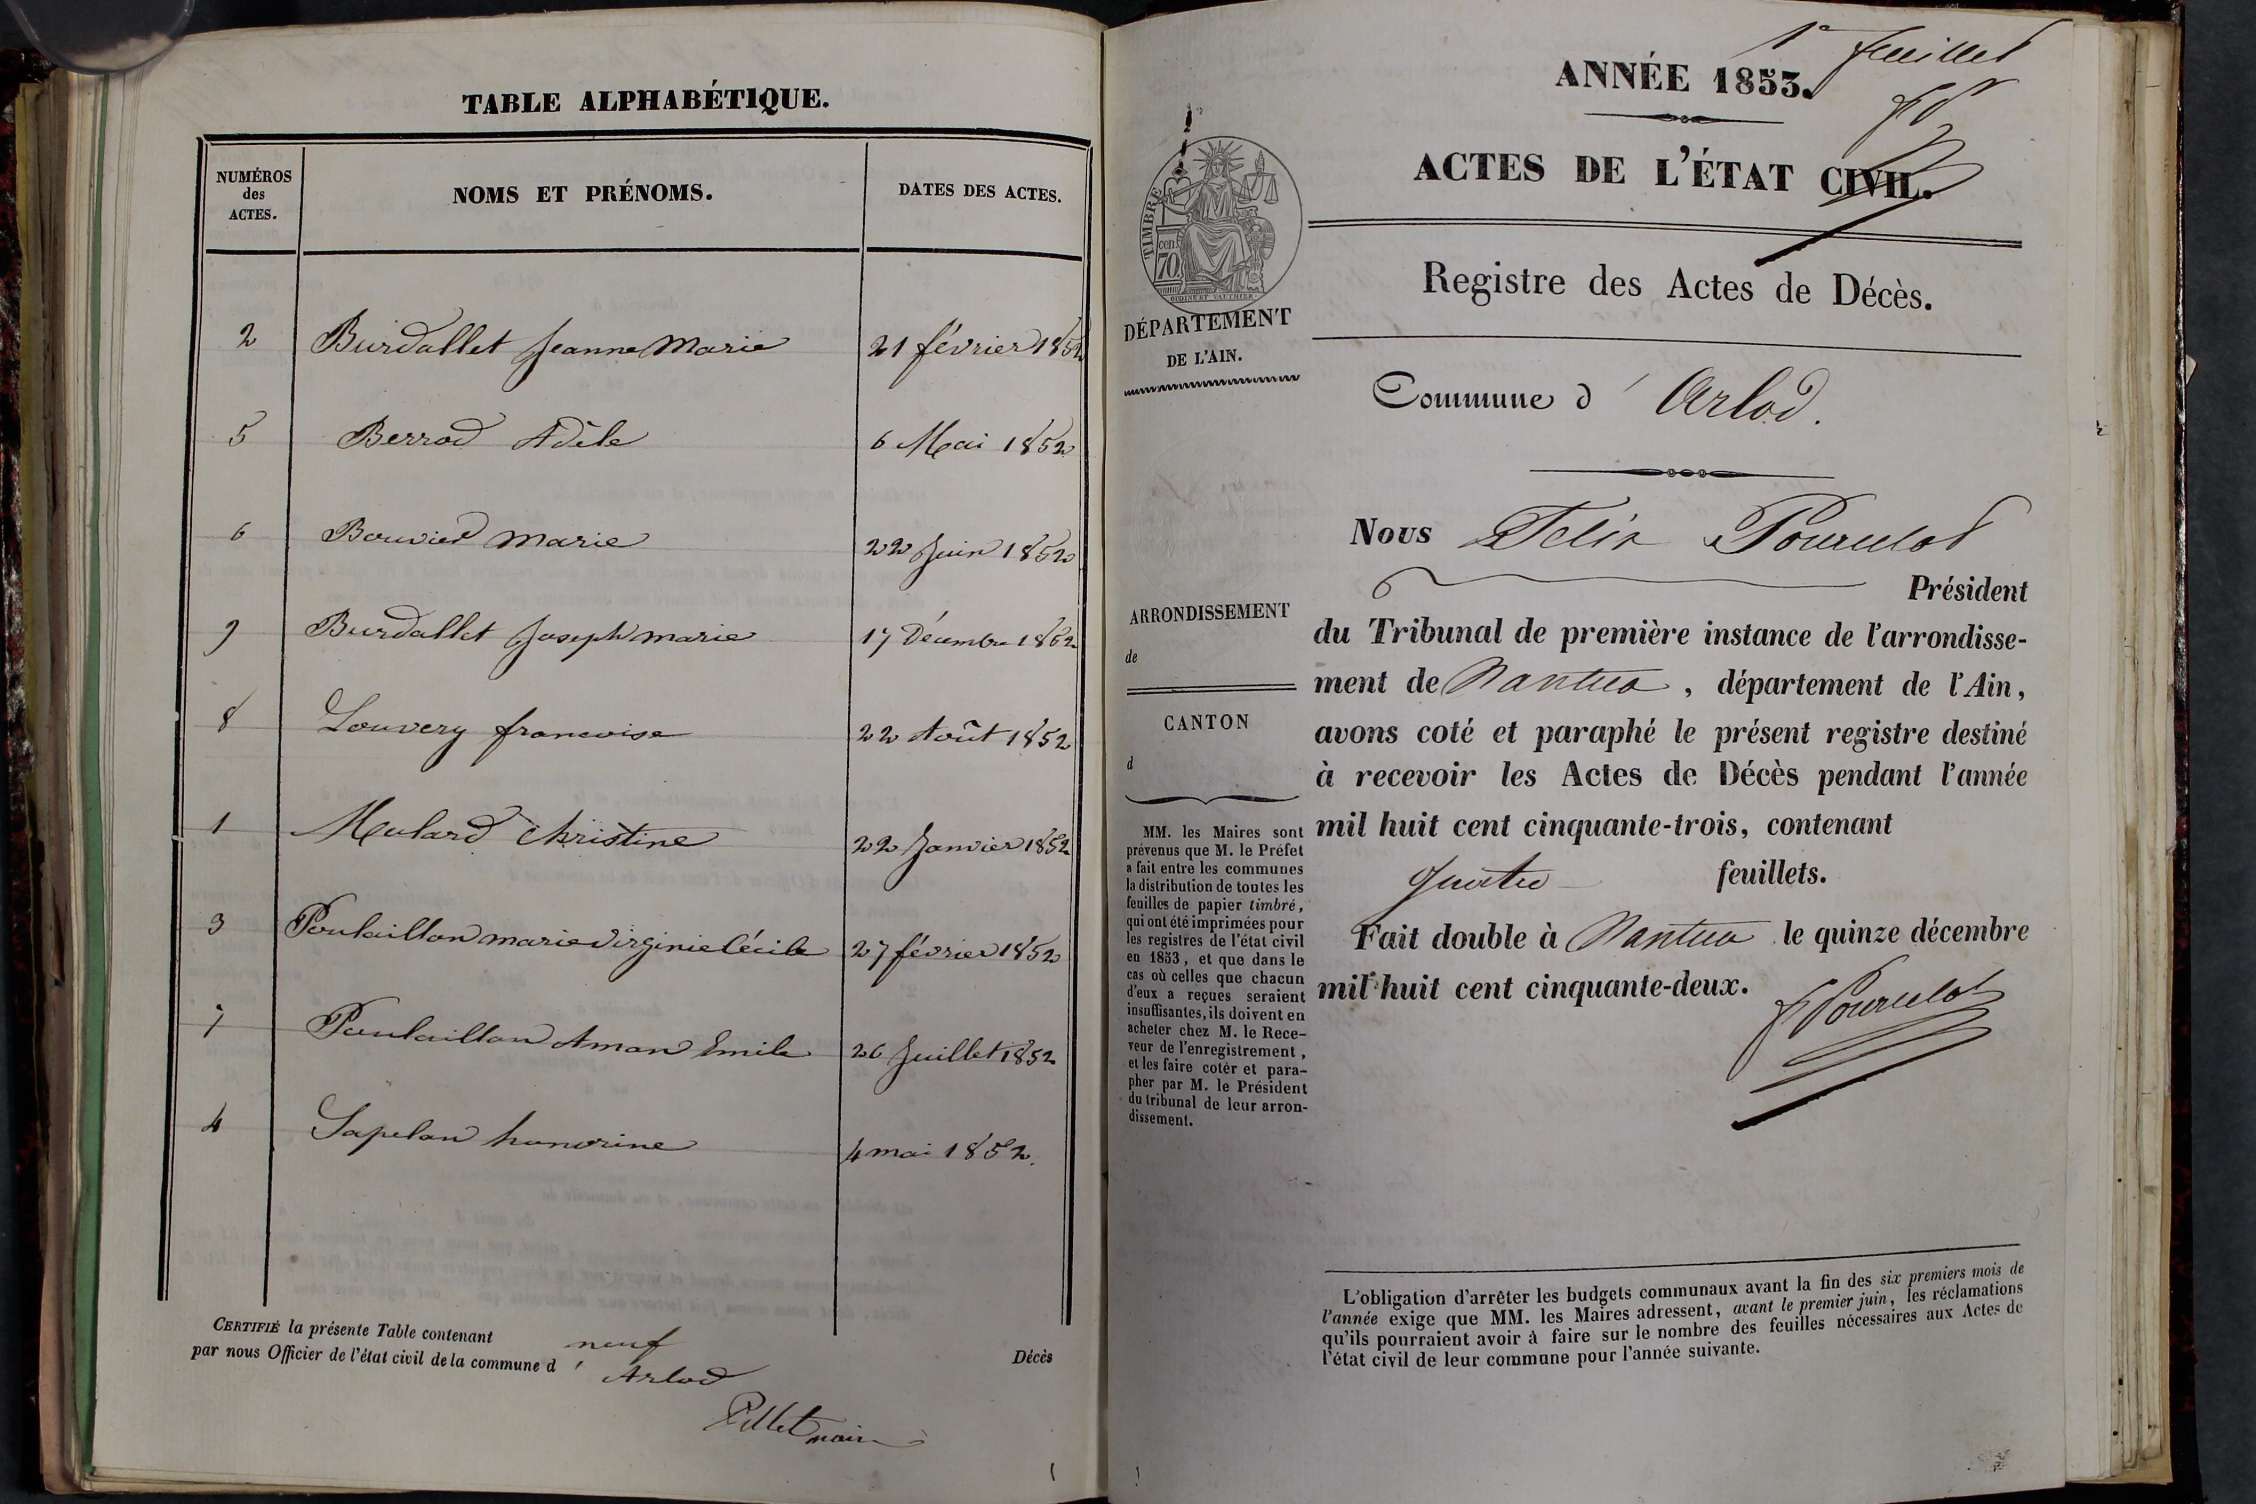 TABLE ALPHABÉTIQUE.
NUMÉROS
des
ACTES.
NOMS ET PRÉNOMS.
DATES DES ACTES.
2 Burdallet Jeanne Marie 21 février 1852
5 Berrod Adèle 6 Mai 1852
6 Bouvier Marie 22 Juin 1852
9 Burdallet Joseph marie 17 Décembre 1852
8 Louvery francoise 22 Août 1852
1 Mulard Christine 22 Janvier 1852
3 Poulaillon marie Virginie Cécile 27 février 1852
7 Poulaillon Aman Emile 26 Juillet 1852
4 Sapelan honorine 4 mai 1852.
CERTIFIÉ la présente Table contenant neuf Décès
par nous Officier de l'état civil de la commune d' Arlod
Pillet maire
1er feuillet
ANNÉE 1853.
ACTES DE L'ÉTAT CIVIL.
TIMBRE
70 cent
Registre des Actes de Décès.
DÉPARTEMENT
DE L'AIN.
Commune d' Arlod.
Nous Felix Pourcelot
Président
ARRONDISSEMENT
de
CANTON
d
du Tribunal de première instance de l'arrondisse-
ment de Nantua, département de l'Ain,
avons coté et paraphé le présent registre destiné
à recevoir les Actes de Décès pendant l'année
mil huit cent cinquante-trois, contenant
quatre feuillets.
Fait double à Nantua le quinze décembre
mil huit cent cinquante-deux.
F Pourcelot
MM. les Maires sont
prévenus que M. le Préfet
a fait entre les communes
la distribution de toutes les
feuilles de papier timbré,
qui ont été imprimées pour
les registres de l'état civil
en 1853, et que dans le
cas où celles que chacun
d'eux a reçues seraient
insuffisantes, ils doivent en
acheter chez M. le Rece-
veur de l'enregistrement,
et les faire coter et para-
pher par M. le Président
du tribunal de leur arron-
dissement.
L'obligation d'arrêter les budgets communaux avant la fin des six premiers mois de
l'année exige que MM. les Maires adressent, avant le premier juin, les réclamations
qu'ils pourraient avoir à faire sur le nombre des feuilles nécessaires aux Actes de
l'état civil de leur commune pour l'année suivante.